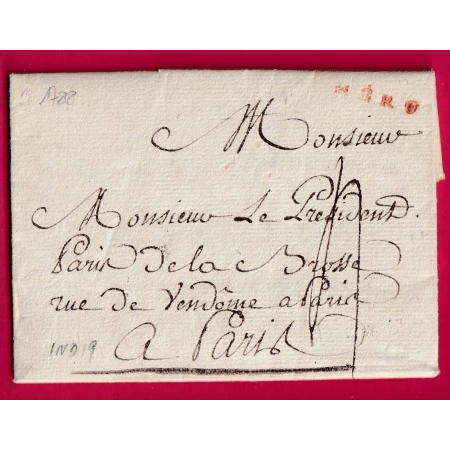 1788
MÉRU
Monsieur
Monsieur Le President.
Paris de la Brosse
rue de Vendôme a Paris
IND 19
a Paris